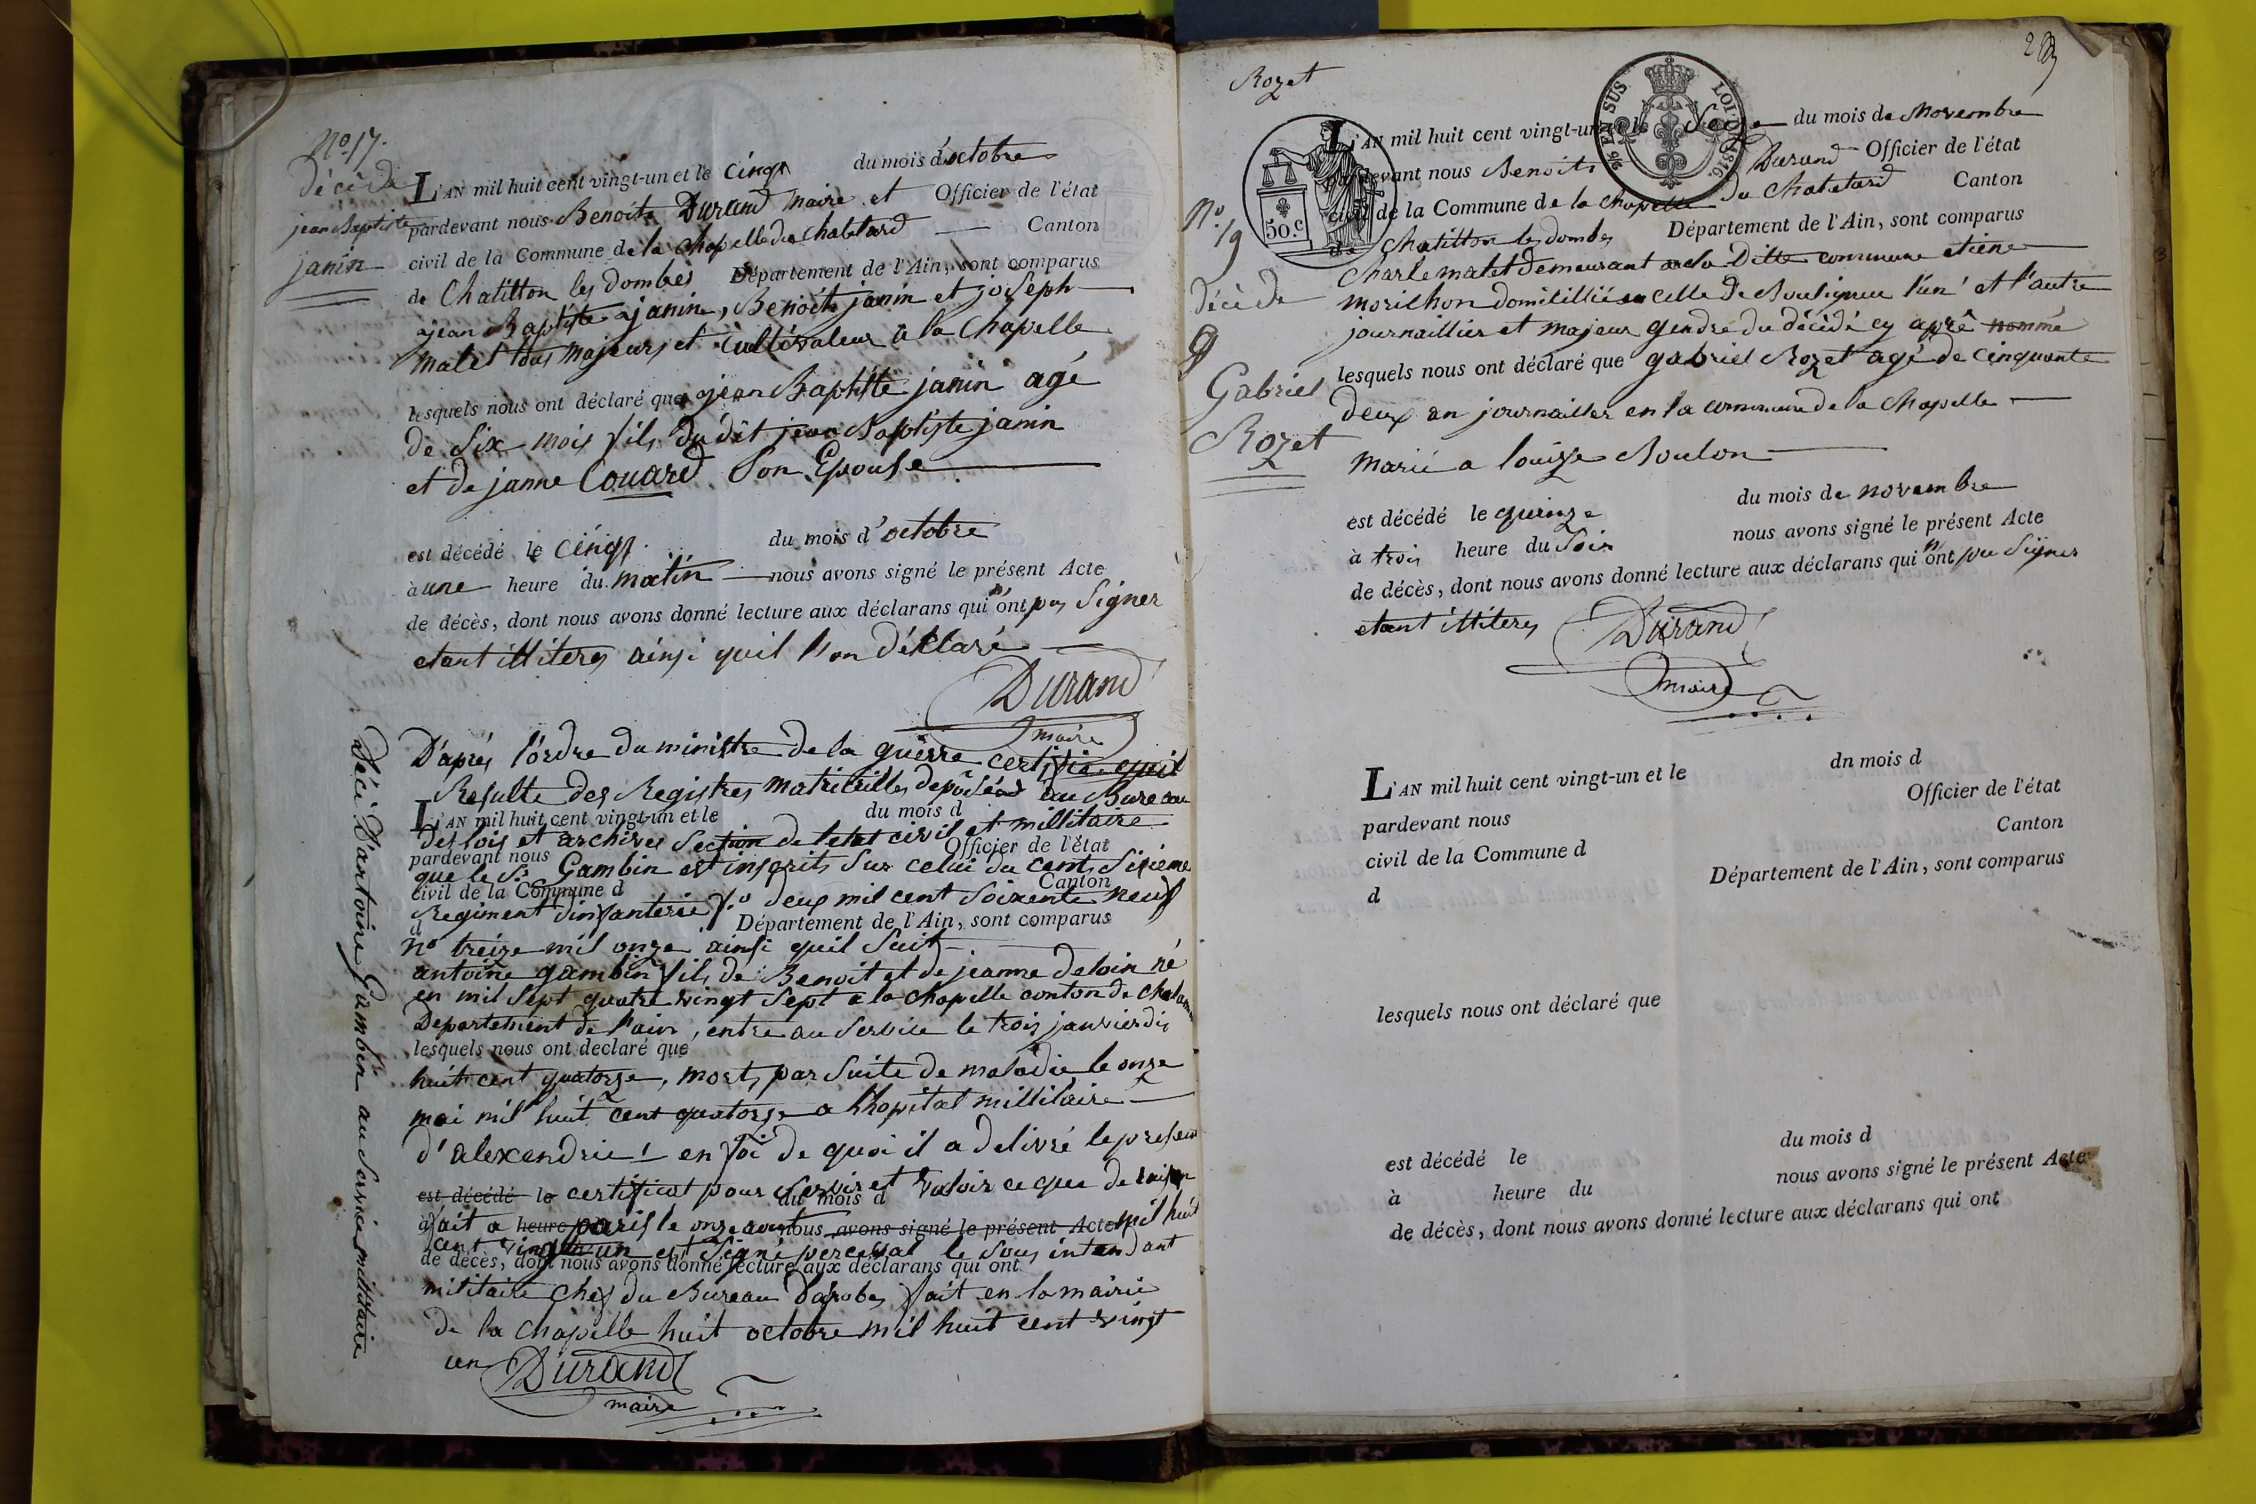 No. 17.
Décé de
jean Baptiste
janin
L'AN mil huit cent vingt-un et le cinq du mois d'octobre
pardevant nous Benoit Durand maire et Officier de l'état
civil de la Commune de la chapelle du chatelard Canton
de Chatillon les dombes Département de l'Ain, sont comparus
jean Baptiste janin, Benoit janin et joseph
matet tous majeurs et cultivateur à la Chapelle
lesquels nous ont déclaré que jean Baptiste janin agé
de six mois fils du dit jean Baptiste janin
et de janne Couard son Epouse
est décédé le cinq du mois d'octobre
à une heure du matin nous avons signé le présent Acte
de décès, dont nous avons donné lecture aux déclarans qui n'ont pas signer
etant illiteres ainsi quil lon déclaré
Durand
maire
Décé D'antoine Gambin au service millitaire
D'aprés l'ordre du ministre de la guerre certifie quil
Resulte des Registres matricules deposés au Bureau
L'AN mil huit cent vingt-un et le du mois d
des lois et archives section de letat civil et millitaire
pardevant nous Officier de l'état
que le Sr. Gambin est inscrits sur celui du cent sixieme
civil de la Commune d Canton
Regiment d'infanterie fo. deux mil cent soixente neuf
d Département de l'Ain, sont comparus
no treize mil onze ainsi quil suit
antoine gambin fils de Benoit et de jeanne deloin né
en mil sept quatre vingt sept a la chapelle conton de
Departement de l'ain, entre au service le trois janvier dix
lesquels nous ont declaré que
huit cent quatorze, mort par suite de maladie le onze
mai mil huit cent quatorze a lhopital millitaire
d'alexendrie en foi de quoi il a delivré le present
est décédé le certificat pour servir et valoir ce que de raison
du mois d
à fait a heure paris le onze aout nous avons signé le présent Acte mil huit
cent vingt un est signé perceval le sous intendant
de décès, dont nous avons donné lecture aux déclarans qui ont
militaire chef du Bureau fait en la mairie
de la chapelle huit octobre mil huit cent vingt
un Durand
maire
Rozet
9/6 EN SUS LOI DE 1816.
50.c
No. 19
Décè de
Gabriel
Rozet
L'AN mil huit cent vingt-un et le Seize du mois de Novembre
pardevant nous Benoit Durand Officier de l'état
civil de la Commune de la chapelle du Chatelard Canton
de Chatillon les dombes Département de l'Ain, sont comparus
Charle matet demeurant en la Ditte commune etiene
morilhon domicillié en celle de Bouligneu l'un et l'autre
journaillier et majeur gendre du décédé cy aprè nommé
lesquels nous ont déclaré que gabriel Rozet agé de cinquante
deux an journailler en la commune de la Chapelle
marié a louize Boulon
est décédé le quinze du mois de novembre
à trois heure du soir nous avons signé le présent Acte
de décès, dont nous avons donné lecture aux déclarans qui n'ont pu signer
etant illiteres Durand
maire
L'AN mil huit cent vingt-un et le dn mois d
pardevant nous Officier de l'état
civil de la Commune d Canton
d Département de l'Ain, sont comparus
lesquels nous ont déclaré que
est décédé le du mois d
à heure du nous avons signé le présent Acte
de décès, dont nous avons donné lecture aux déclarans qui ont